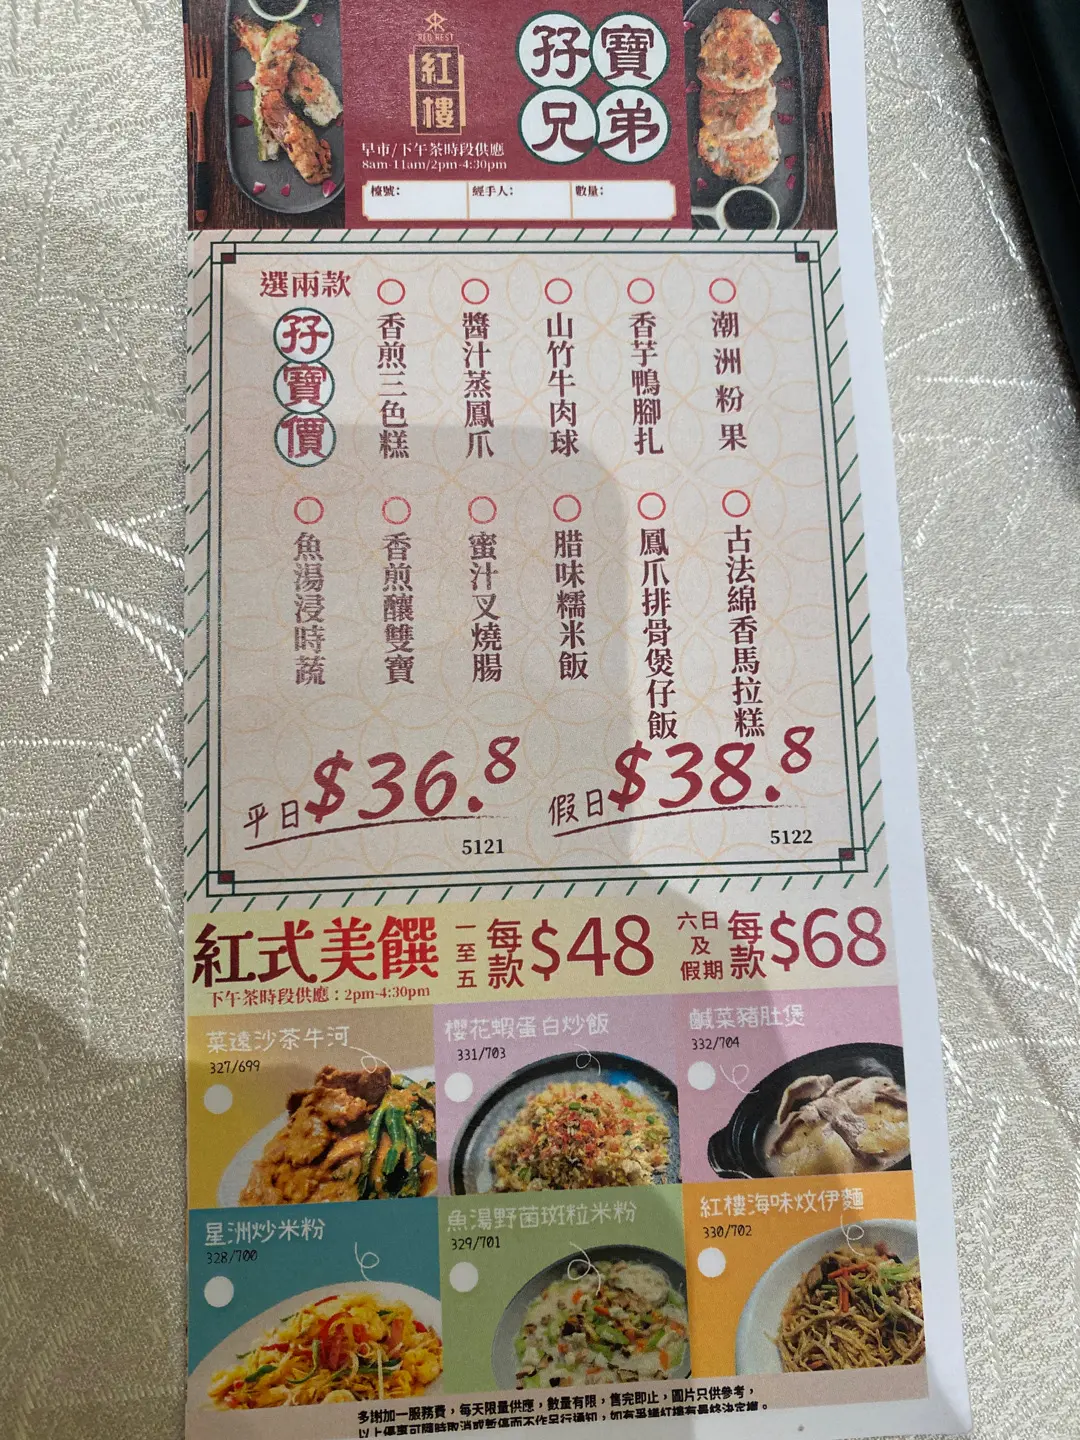 RED NEST
紅樓
孖寶兄弟
早市/下午茶時段供應
8am-11am/2pm-4:30pm
檯號：
經手人：
數量：
選兩款
孖寶價
香煎三色糕
醬汁蒸鳳爪
山竹牛肉球
香芋鴨腳扎
潮洲粉果
魚湯浸時蔬
香煎釀雙寶
蜜汁叉燒腸
腊味糯米飯
鳳爪排骨煲仔飯
古法綿香馬拉糕
平日$36.8
5121
假日$38.8
5122
紅式美饌
下午茶時段供應：2pm-4:30pm
一至五
每款$48
六日及假期
每款$68
菜遠沙茶牛河
327/699
櫻花蝦蛋白炒飯
331/703
鹹菜豬肚煲
332/704
星洲炒米粉
328/700
魚湯野菌斑粒米粉
329/701
紅樓海味炆伊麵
330/702
多謝加一服務費，每天限量供應，數量有限，售完即止，圖片只供參考，
以上優惠可隨時取消或暫停而不作另行通知，如有爭議紅樓有最終決定權。